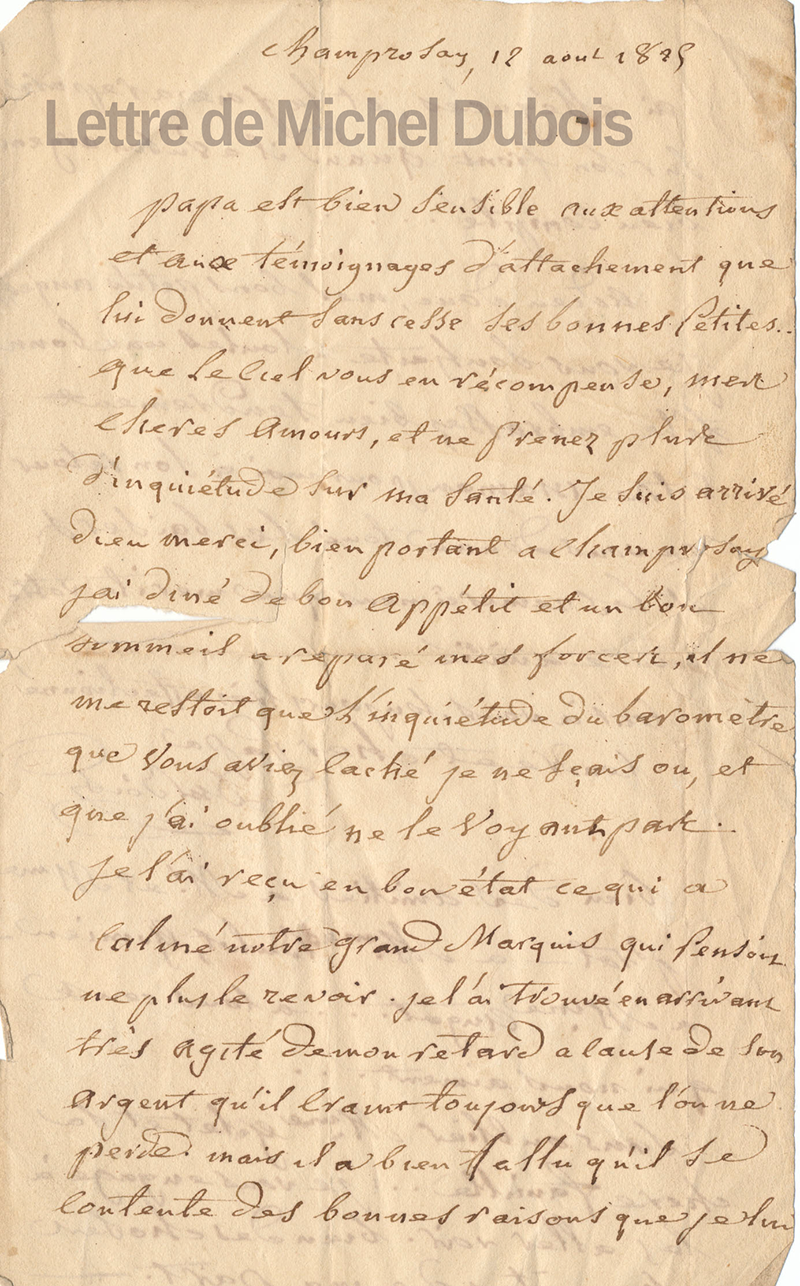 Champrosay, 12 aout 1825
Lettre de Michel Dubois
papa est bien sensible aux attentions
et aux témoignages d'attachement que
lui donnent sans cesse ses bonnes petites..
que le Ciel vous en récompense, mes
cheres amours, et ne prenez plus
d'inquiétude sur ma santé. Je suis arrivé
dieu merci, bien portant a Champrosay
j'ai diné de bon appétit et un bon
sommeil a reparé mes forces, il ne
me restoit que l'inquiétude du baromètre
que vous aviez laché je ne sçais ou, et
que j'ai oublié ne le voyant pas.
je l'ai reçu en bon état ce qui a
calmé notre grand Marquis qui pensoit
ne plus le revoir. je l'ai trouvé en arrivant
très agité de mon retard a cause de son
argent qu'il craint toujours que l'on ne
perde. mais il a bien fallu qu'il se
contente des bonnes raisons que je lui